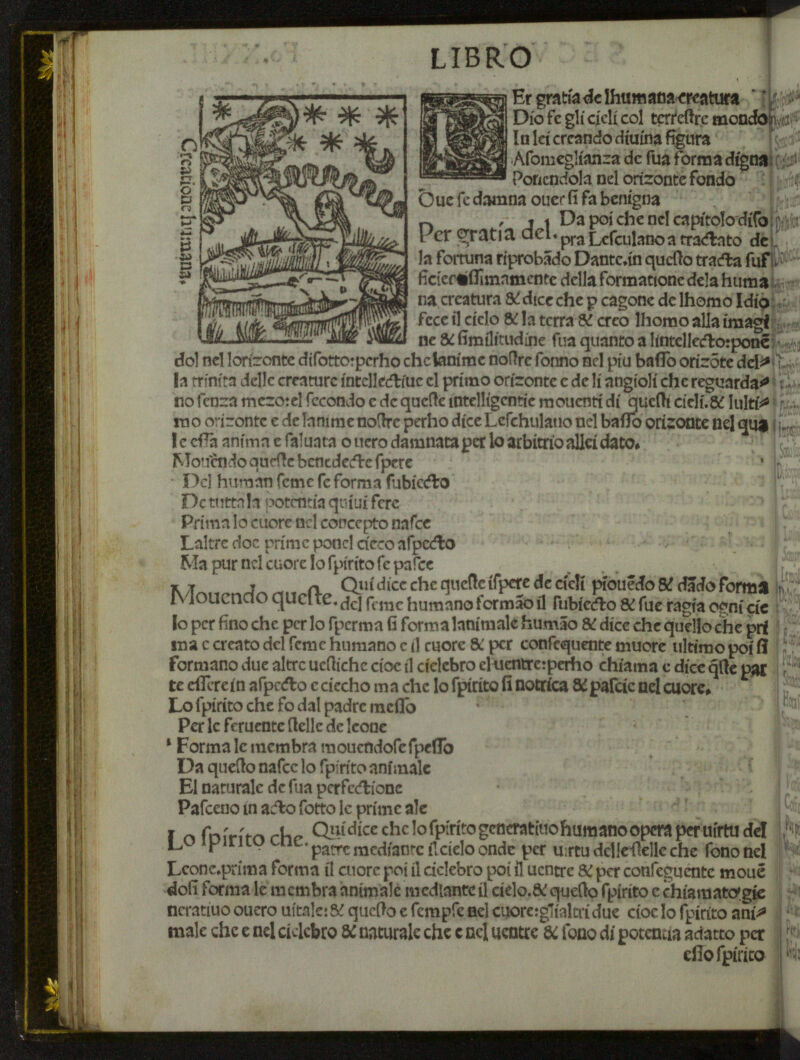 LIBRO
Creatione humana.
PEr gratia de lhumana creatura
Dio fe gli cieli col terrestre mondo
In lei creando diuina figura
Asomeglianza de sua forma digna
Ponendola nel orizonte fondo
Oue se damna ouer si fa benigna
Per gratia del. Da poi che nel capitolo diso
pra Lesculano a tractato de
la fortuna riprobādo Dante.in questo tracta suf
ficientissimamente della formatione dela huma
na creatura & dice che p cagone de lhomo Idio
fece il cielo & la terra & creo lhomo alla imagi
ne & similitudine sua quanto a lintellecto:ponē
dol nel lorizonte disotto:perho che lanime nostre sonno nel piu basso orizōte del
la trinita delle creature intellectiue el primo orizonte e de li angioli che reguarda
no senza mezo:el secondo e de queste intelligentie mouenti di questi cieli.& lulti
mo orizonte e de lanime nostre perho dice Leschulano nel basso orizonte nel qua
le essa anima e saluata o uero damnata per lo arbitrio allei dato.
Mouendo queste benedecte spere
Del human seme se forma subiecto
De tutta la potentia quiui fere
Prima lo cuore nel concepto nasce
Laltre doe prime ponel cieco aspecto
Ma pur nel cuore lo spirito se pasce
Mouendo queste. Qui dice che queste ispere de cieli prouēdo & dādo forma
del seme humano formāo il subiecto & sue ragia ogni cie
lo per fino che per lo sperma si forma lanimale humāo & dice che quello che pri
ma e creato del seme humano e il cuore & per consequente muore ultimo poi si
formano due altre uestiche cioe il cielebro el uentre:perho chiama e dice q̄ste par
te essere in aspecto e ciecho ma che lo spirito si notrica & pascie nel cuore.
Lo spirito che fo dal padre messo
Per le feruente stelle de leone
Forma le membra mouendose spesso
Da questo nasce lo spirito animale
El naturale de sua perfectione
Pasceno in acto sotto le prime ale
Lo spirito che. Qui dice che lo spirito generatiuo humano opera per uirtu del
patre mediante il cielo onde per uirtu delle stelle che sono nel
Leone.prima forma il cuore poi il cielebro poi il uentre & per conseguente mouē
dosi forma le membra animale mediante il cielo.& questo spirito e chiamato gie
neratiuo ouero uitale:& questo e sempre nel cuore:glialtri due cioe lo spirito ani
male che e nel cielebro & naturale che e nel uentre & sono di potentia adatto per
esso spirito